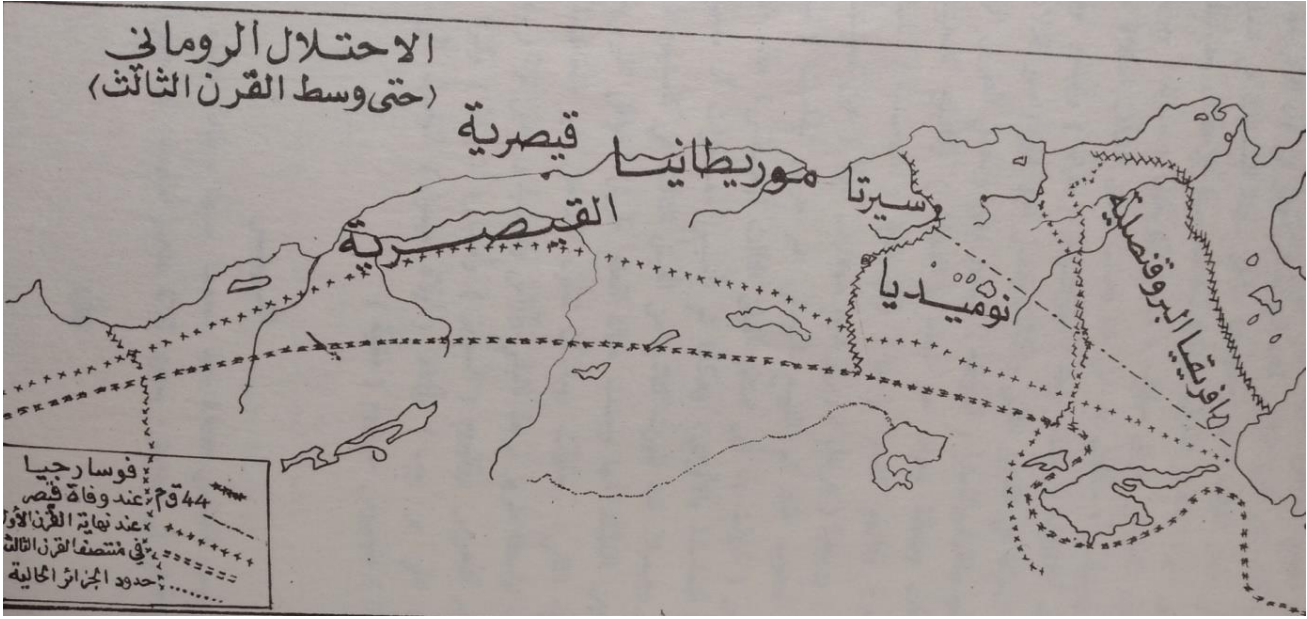 الاحتلال الروماني
(حتى وسط القرن الثالث)
قيصرية
موريطانيا
القيصرية
سيرتا
نوميديا
افريقيا البروقنصلية
فوسا رجيا
44 ق م عند وفاة قيصر
عند نهاية القرن الأول
في منتصف القرن الثالث
حدود الجزائر الحالية